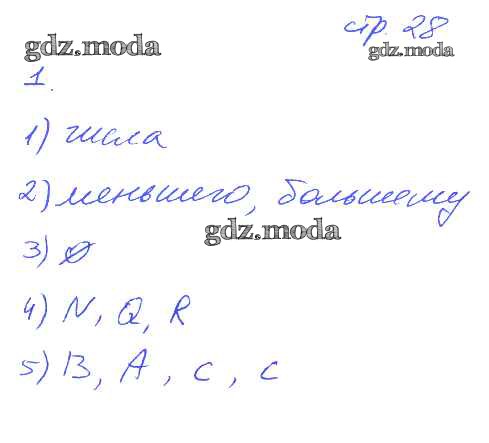 стр. 28
gdz.moda
gdz.moda
1.
1) числа
2) меньшего, большему
gdz.moda
3) Ø
4) N, Q, R
5) B, A, C, C